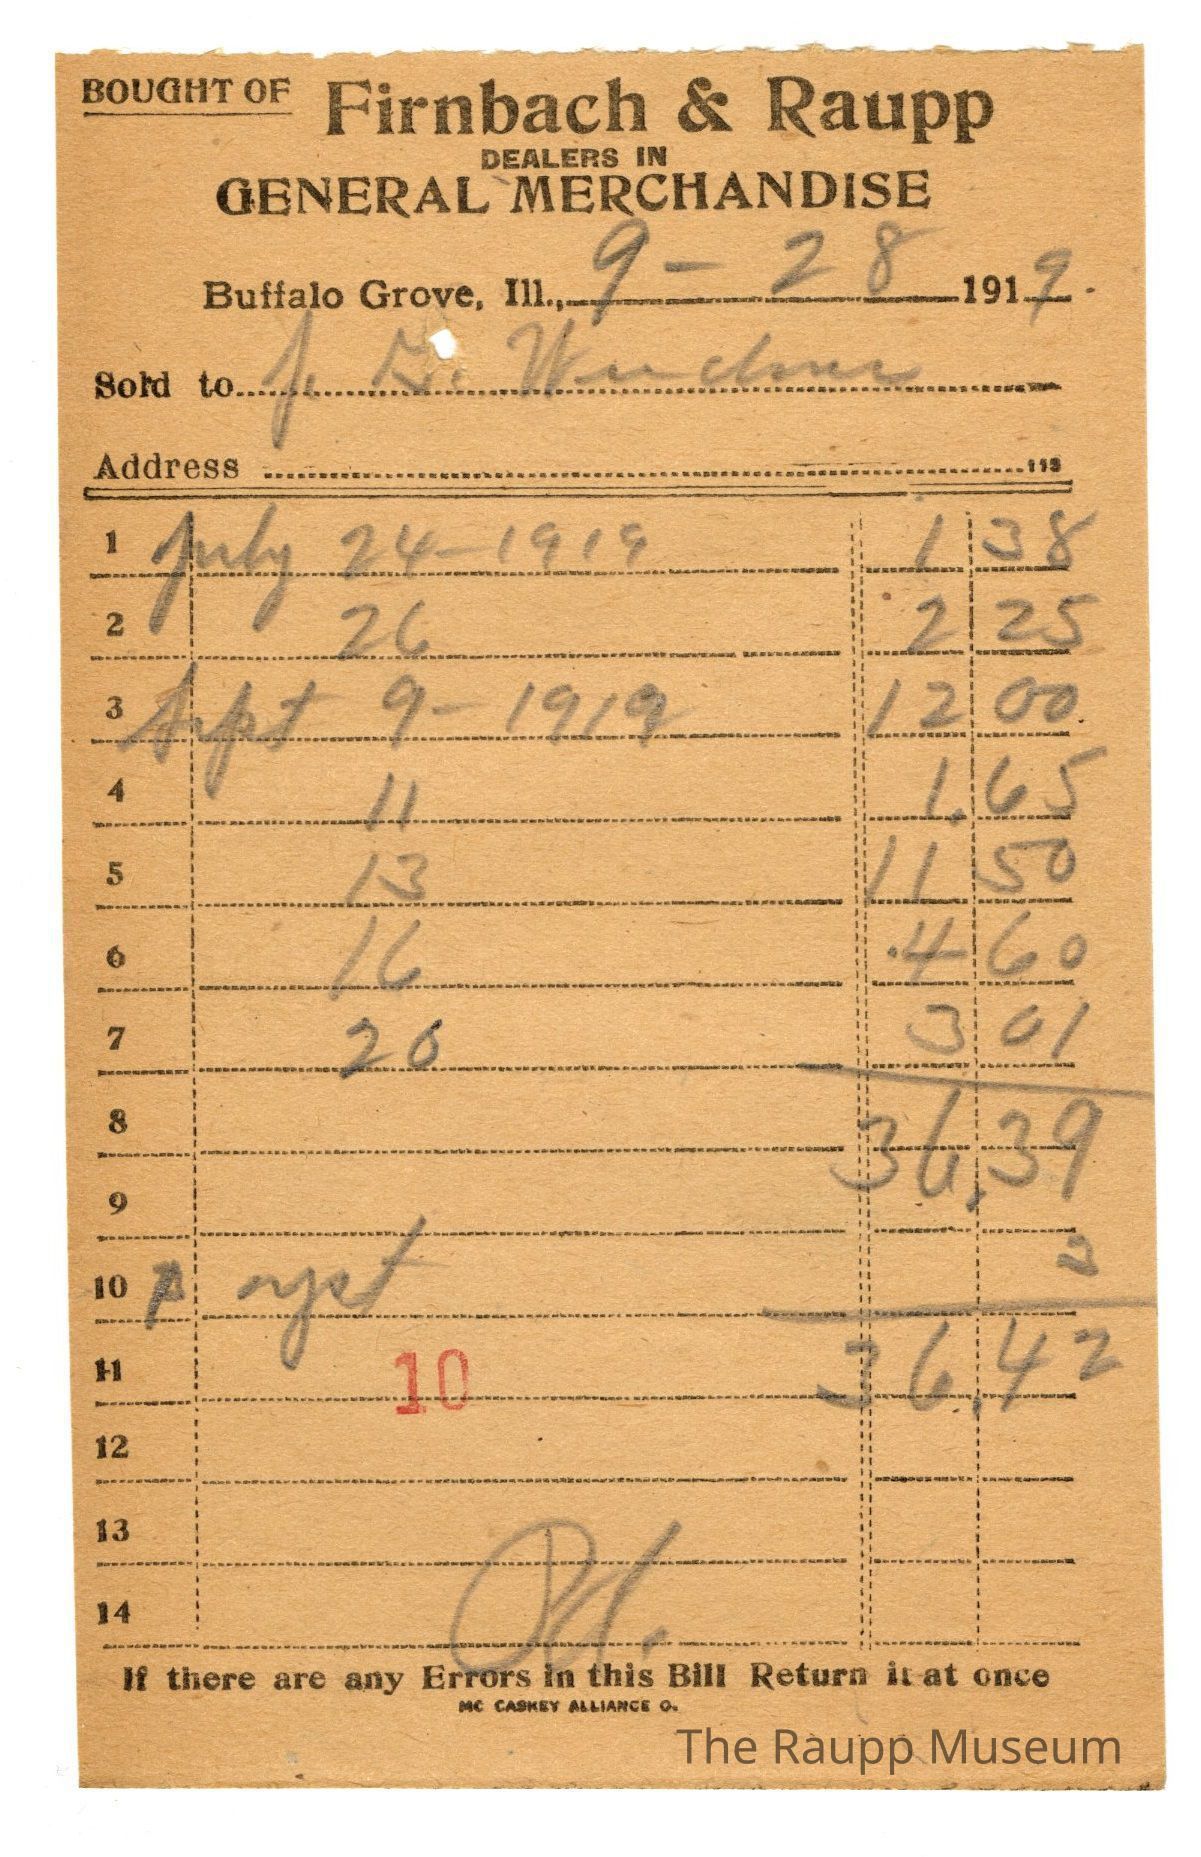 BOUGHT OF Firnbach & Raupp
DEALERS IN
GENERAL MERCHANDISE
Buffalo Grove, Ill., 9 - 28 1919.
Sold to J. G.
Address
1 July 24-1919 1 38
2 26 2 25
3 Sept 9-1919 12 00
4 11 1.65
5 13 11 50
6 16 4 60
7 26 3 01
8 36.39
9
3
10
36.42
11 10
12
13
14 Pd.
If there are any Errors in this Bill Return it at once
MC CASKEY ALLIANCE O.
The Raupp Museum